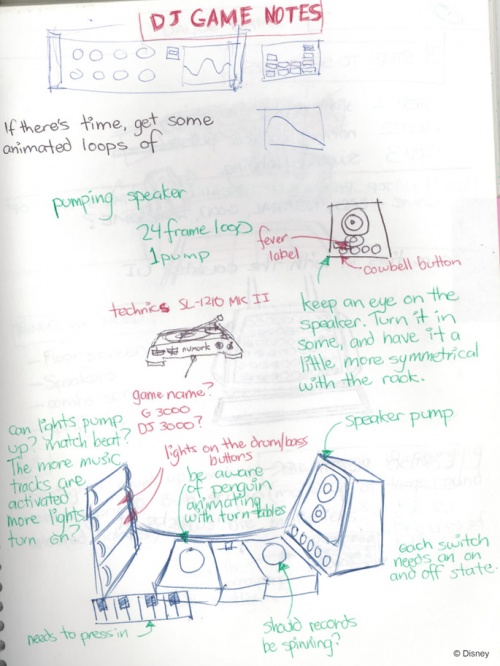 DJ GAME NOTES
If there's time, get some
animated loops of
pumping speaker
24 frame loop
1 pump
fever
label
cowbell button
technics SL-1210 MK II
numark
keep an eye on the
speaker. Turn it in
some, and have it a
little more symmetrical
with the rack.
game name?
G 3000
DJ 3000?
can lights pump
up? match beat?
The more music
tracks are
activated
more lights
turn on?
lights on the drum/bass
buttons
be aware
of penguin
animating
with turntables
speaker pump
each switch
needs an on
and off state.
needs to press in
should records
be spinning?
© Disney